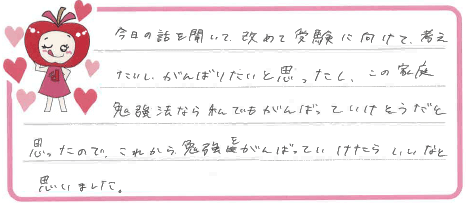 今日の話を聞いて、改めて受験に向けて、考え
たいし、がんばりたいと思ったし、この家庭
勉強法なら私でもがんばっていけそうだと
思ったので、これから、勉強をがんばっていけたらいいなと
思いました。